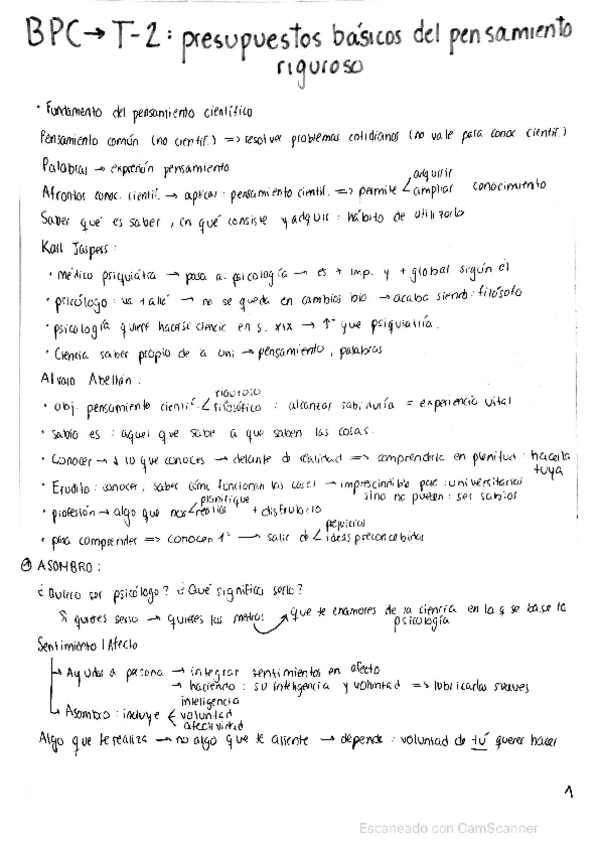 BPC → T-2: presupuestos básicos del pensamiento
riguroso
· Fundamento del pensamiento científico
Pensamiento común (no científ.) => resolver problemas cotidianos (no vale para conoc. científ.)
Palabras → expresión pensamiento
Afrontar conoc. científ. → aplicar: pensamiento científ. => permite < adquirir ampliar conocimiento
Saber qué es saber, en qué consiste y adquir: hábito de utilizarlo
Karl Jaspers:
· médico psiquiátra → pasa a: psicología → es + imp. y + global según él
· psicólogo: va + allá → no se queda en cambios bio → acaba siendo: filósofo
· psicología quiere hacerse ciencia en s. XIX → ↑ que psiquiatría.
· Ciencia saber propio de la uni → pensamiento, palabras
Alvaro Abellán:
· obj. pensamiento científ. < riguroso filosófico : alcanzar sabiduría = experiencia vital
· sabio es: aquel que sabe a que saben las cosas.
· Conocer → lo que conoces → delante de realidad => comprenderla en plenitud: hacerla
tuya
· Erudito: conocer, saber cómo funcionan las cosas → imprescindible para: universitarios
sino no pueden: ser sabios
· profesión → algo que nos < plenifique realice + disfrutarlo
· para comprender => conocer 1º → salir de < prejuicios ideas preconcebidas
ASOMBRO:
¿Quiero ser psicólogo? ¿Qué significa serlo?
Si quieres serlo → quieres las metas que te enamores de la ciencia en la q se base la
psicología
Sentimiento / Afecto
→ Ayudar a persona → integrar sentimientos en afecto
→ haciendo: su inteligencia y voluntad => lubricarlas suaves
→ Asombro: incluye < inteligencia voluntad afectividad
Algo que te realiza → no algo que te aliente → depende: voluntad de tú querer hacer
1
Escaneado con CamScanner